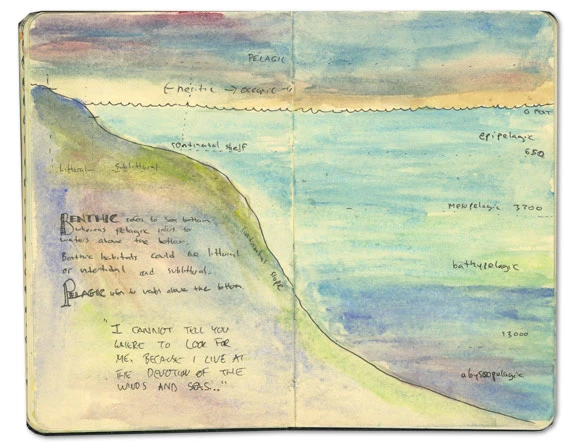 PELAGIC
(-neritic -> oceanic -
0 FEET
epipelagic
650
continental shelf
littoral sublittoral
Mesopelagic 3300
BENTHIC refers to sea bottom
whereas pelagic refers to
waters above the bottom.
Benthic habitats could be littoral
or intertidal and sublittoral.
continental slope
bathypelagic
PELAGIC refers to waters above the bottom
13000
abyssopelagic
"I CANNOT TELL YOU
WHERE TO LOOK FOR
ME, BECAUSE I LIVE AT
THE DEVOTION OF THE
WINDS AND SEAS..."